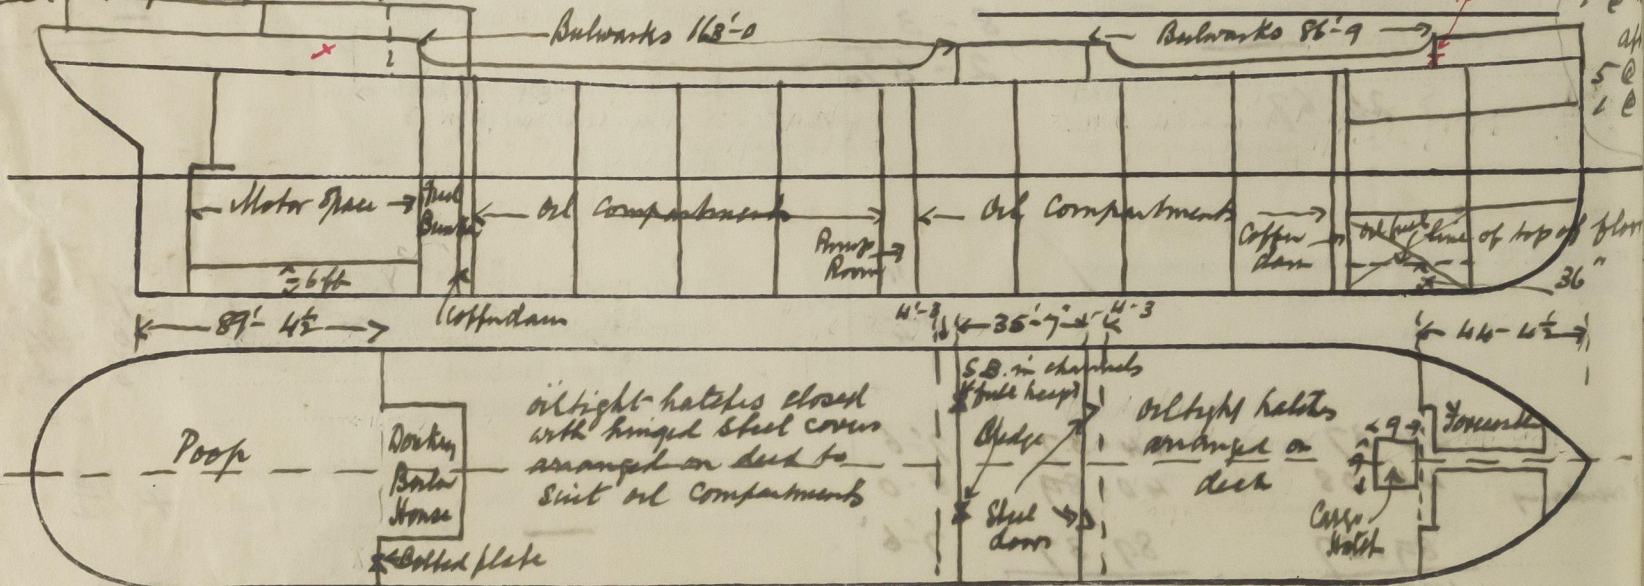 Bulwarks 163'-0
Bulwarks 86'-9
5 @
1 @
Motor Space
Fuel
Bunker
Oil Compartments
Pump
Room
Oil Compartments
Coffer
dam
oil fuel
line of top of floor
6 ft
36"
Cofferdam
89'- 4½
4'-3
35'-7"
4'-3
44-4½
Poop
Donkey
Boiler
House
Bolted plate
oiltight hatches closed
with hinged steel covers
arranged on deck to
suit oil compartments
S.B. in channels
(full height)
Bridge
Steel
doors
oiltight hatches
arranged on
deck
9
9
Cargo
Hatch
Forecastle